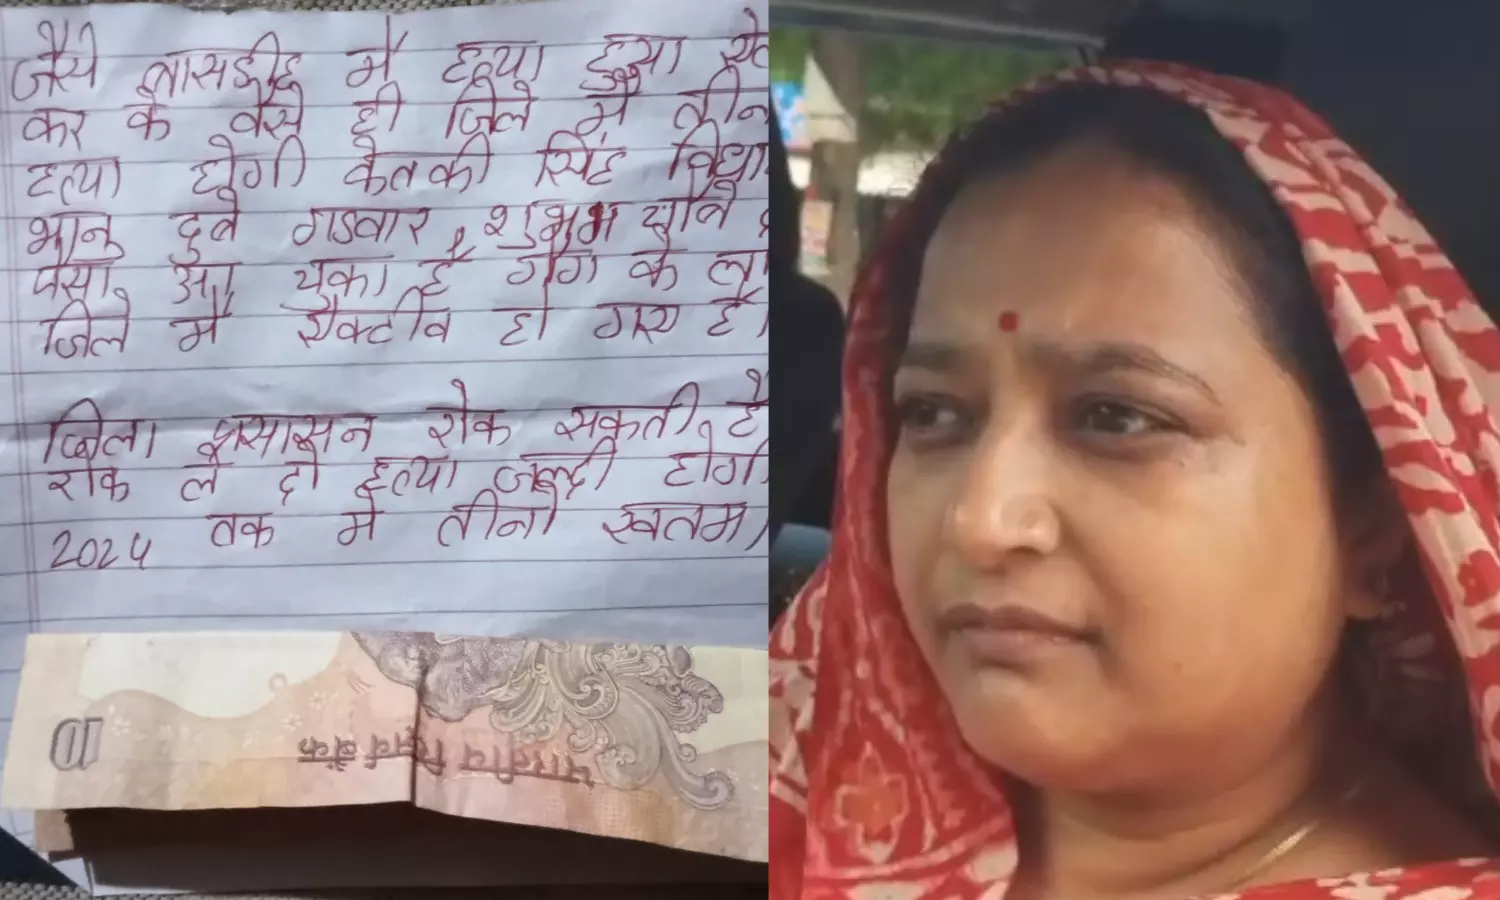 जैसे लासडीह में हत्या हुया
कर के वैसे ही जिले में तीन
हत्या होगी केतकी सिंह विधा
भानु दुवे गडवार, शुभम चौवे
पैसा आ चुका है गैंग के
जिले में एक्टीव हो गए है।
जिला प्रसासन रोक सकती है
रोक ले दो हत्या जल्दी होगी
2024 तक में तीनो खतम।
10
भारतीय रिज़र्व बैंक